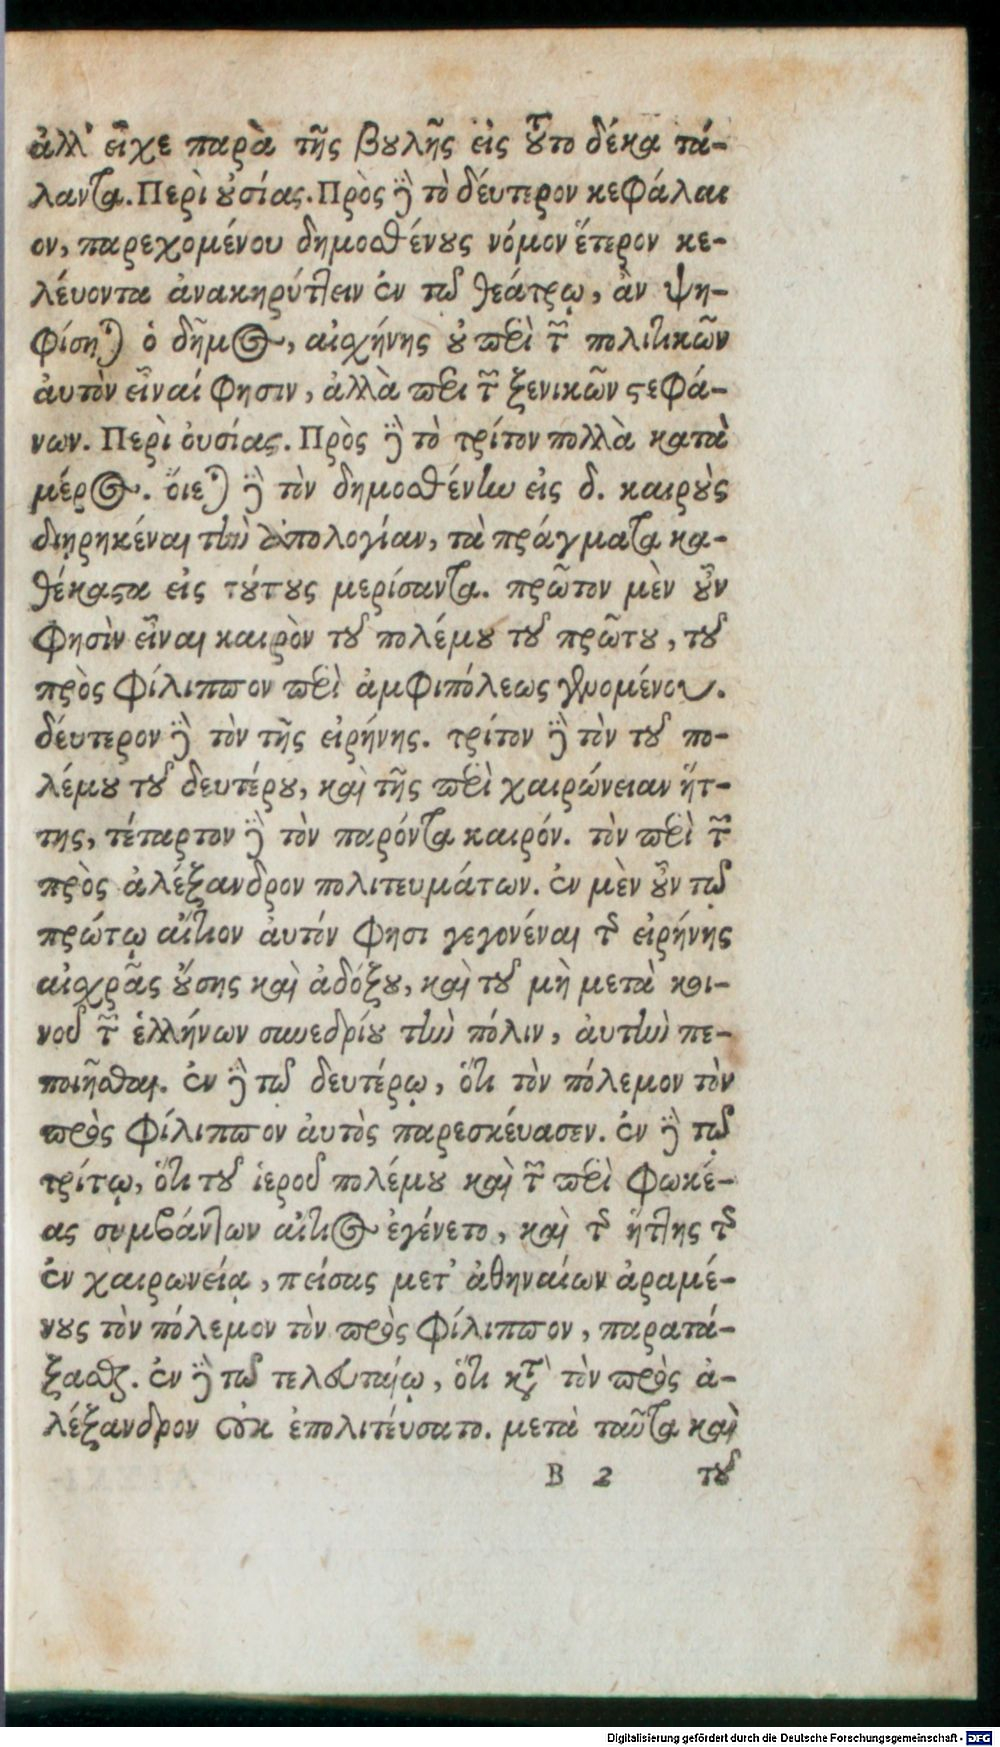 ἀλλ' εἶχε παρὰ τῆς βουλῆς εἰς τοῦτο δέκα τά-
λαντα. Περὶ οὐσίας. Πρὸς δὲ τὸ δεύτερον κεφάλαι
ον, παρεχομένου δημοσθένους νόμον ἕτερον κε-
λεύοντα ἀνακηρύττειν ἐν τῷ θεάτρῳ, ἂν ψη-
φίσηται ὁ δῆμος, αἰσχήνης οὐ περὶ τῶν πολιτικῶν
αὐτὸν εἶναί φησιν, ἀλλὰ περὶ τῶν ξενικῶν στεφά-
νων. Περὶ οὐσίας. Πρὸς δὲ τὸ τρίτον πολλὰ κατὰ
μέρος. οἴεται δὲ τὸν δημοσθένην εἰς δ. καιροὺς
διῃρηκέναι τὴν ἀπολογίαν, τὰ πράγματα κα-
θέκαστα εἰς τούτους μερίσαντα. πρῶτον μὲν οὖν
φησὶν εἶναι καιρὸν τοῦ πολέμου τοῦ πρῶτου, τοῦ
πρὸς φίλιππον περὶ ἀμφιπόλεως γενομένου.
δεύτερον δὲ τὸν τῆς εἰρήνης. τρίτον δὲ τὸν τοῦ πο-
λέμου τοῦ δευτέρου, καὶ τῆς περὶ χαιρώνειαν ἥτ-
της, τέταρτον δὲ τὸν παρόντα καιρόν. τὸν περὶ τῶν
πρὸς ἀλέξανδρον πολιτευμάτων. ἐν μὲν οὖν τῷ
πρώτῳ αἴτιον αὐτόν φησι γεγονέναι τῆς εἰρήνης
αἰσχρᾶς οὔσης καὶ ἀδόξου, καὶ τοῦ μὴ μετὰ κοι-
νοῦ τῶν ἑλλήνων συνεδρίου τὴν πόλιν, αὐτὴν πε-
ποιῆσθαι. ἐν δὲ τῷ δευτέρῳ, ὅτι τὸν πόλεμον τὸν
πρὸς φίλιππον αὐτὸς παρεσκεύασεν. ἐν δὲ τῷ
τρίτῳ, ὅτι τοῦ ἱεροῦ πολέμου καὶ τῶν περὶ φωκέ-
ας συμβάντων αἴτιος ἐγένετο, καὶ τῆς ἥττης τῆς
ἐν χαιρωνείᾳ, πείσας μετ' ἀθηναίων ἀραμέ-
νους τὸν πόλεμον τὸν πρὸς φίλιππον, παρατά-
ξασθαι. ἐν δὲ τῷ τελευταίῳ, ὅτι κατὰ τὸν πρὸς ἀ-
λέξανδρον οὐκ ἐπολιτεύσατο. μετὰ ταῦτα καὶ
B 2 τοῦ
Digitalisierung gefördert durch die Deutsche Forschungsgemeinschaft - DFG